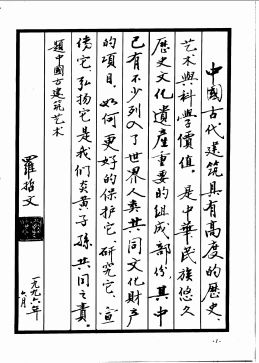 中國古代建筑具有高度的歷史、
艺术與科學價值。是中華民族悠久
歷史文化遺產重要的組成部份，其中
已有不少列入了世界人类共同文化財产
的項目。如何更好的保护它、研究它、宣
传它、弘扬它是我们炎黃子孫共同之責。
題中國古建筑艺术
羅哲文
一九九六年
六月
·1·